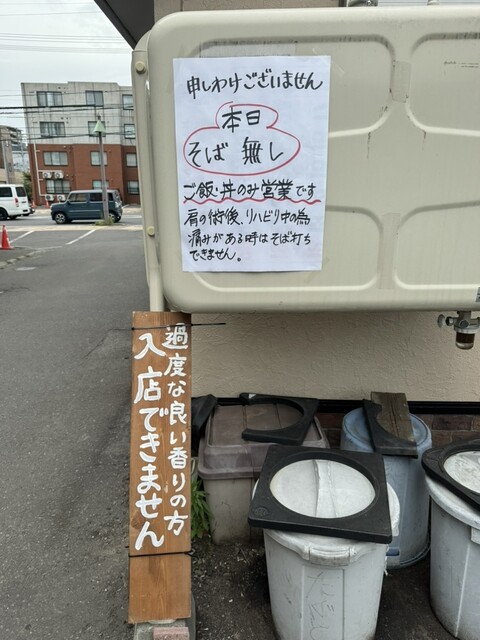 申しわけございません
本日
そば 無し
ご飯・丼のみ営業です
肩の術後、リハビリ中の為
痛みがある時はそば打ち
できません。
過度な良い香りの方
入店できません